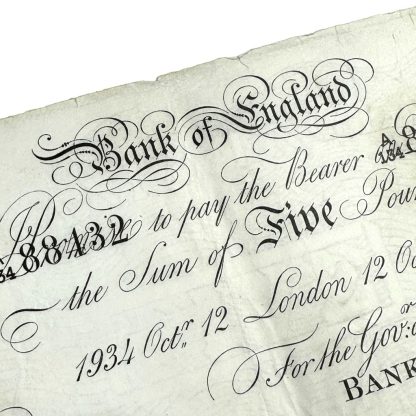 Bank of England
I Promise to pay the Bearer
A 8
134
34 88432
the Sum of Five Poun
1934 Octr. 12 London 12 Oc
For the Govr.
BANK